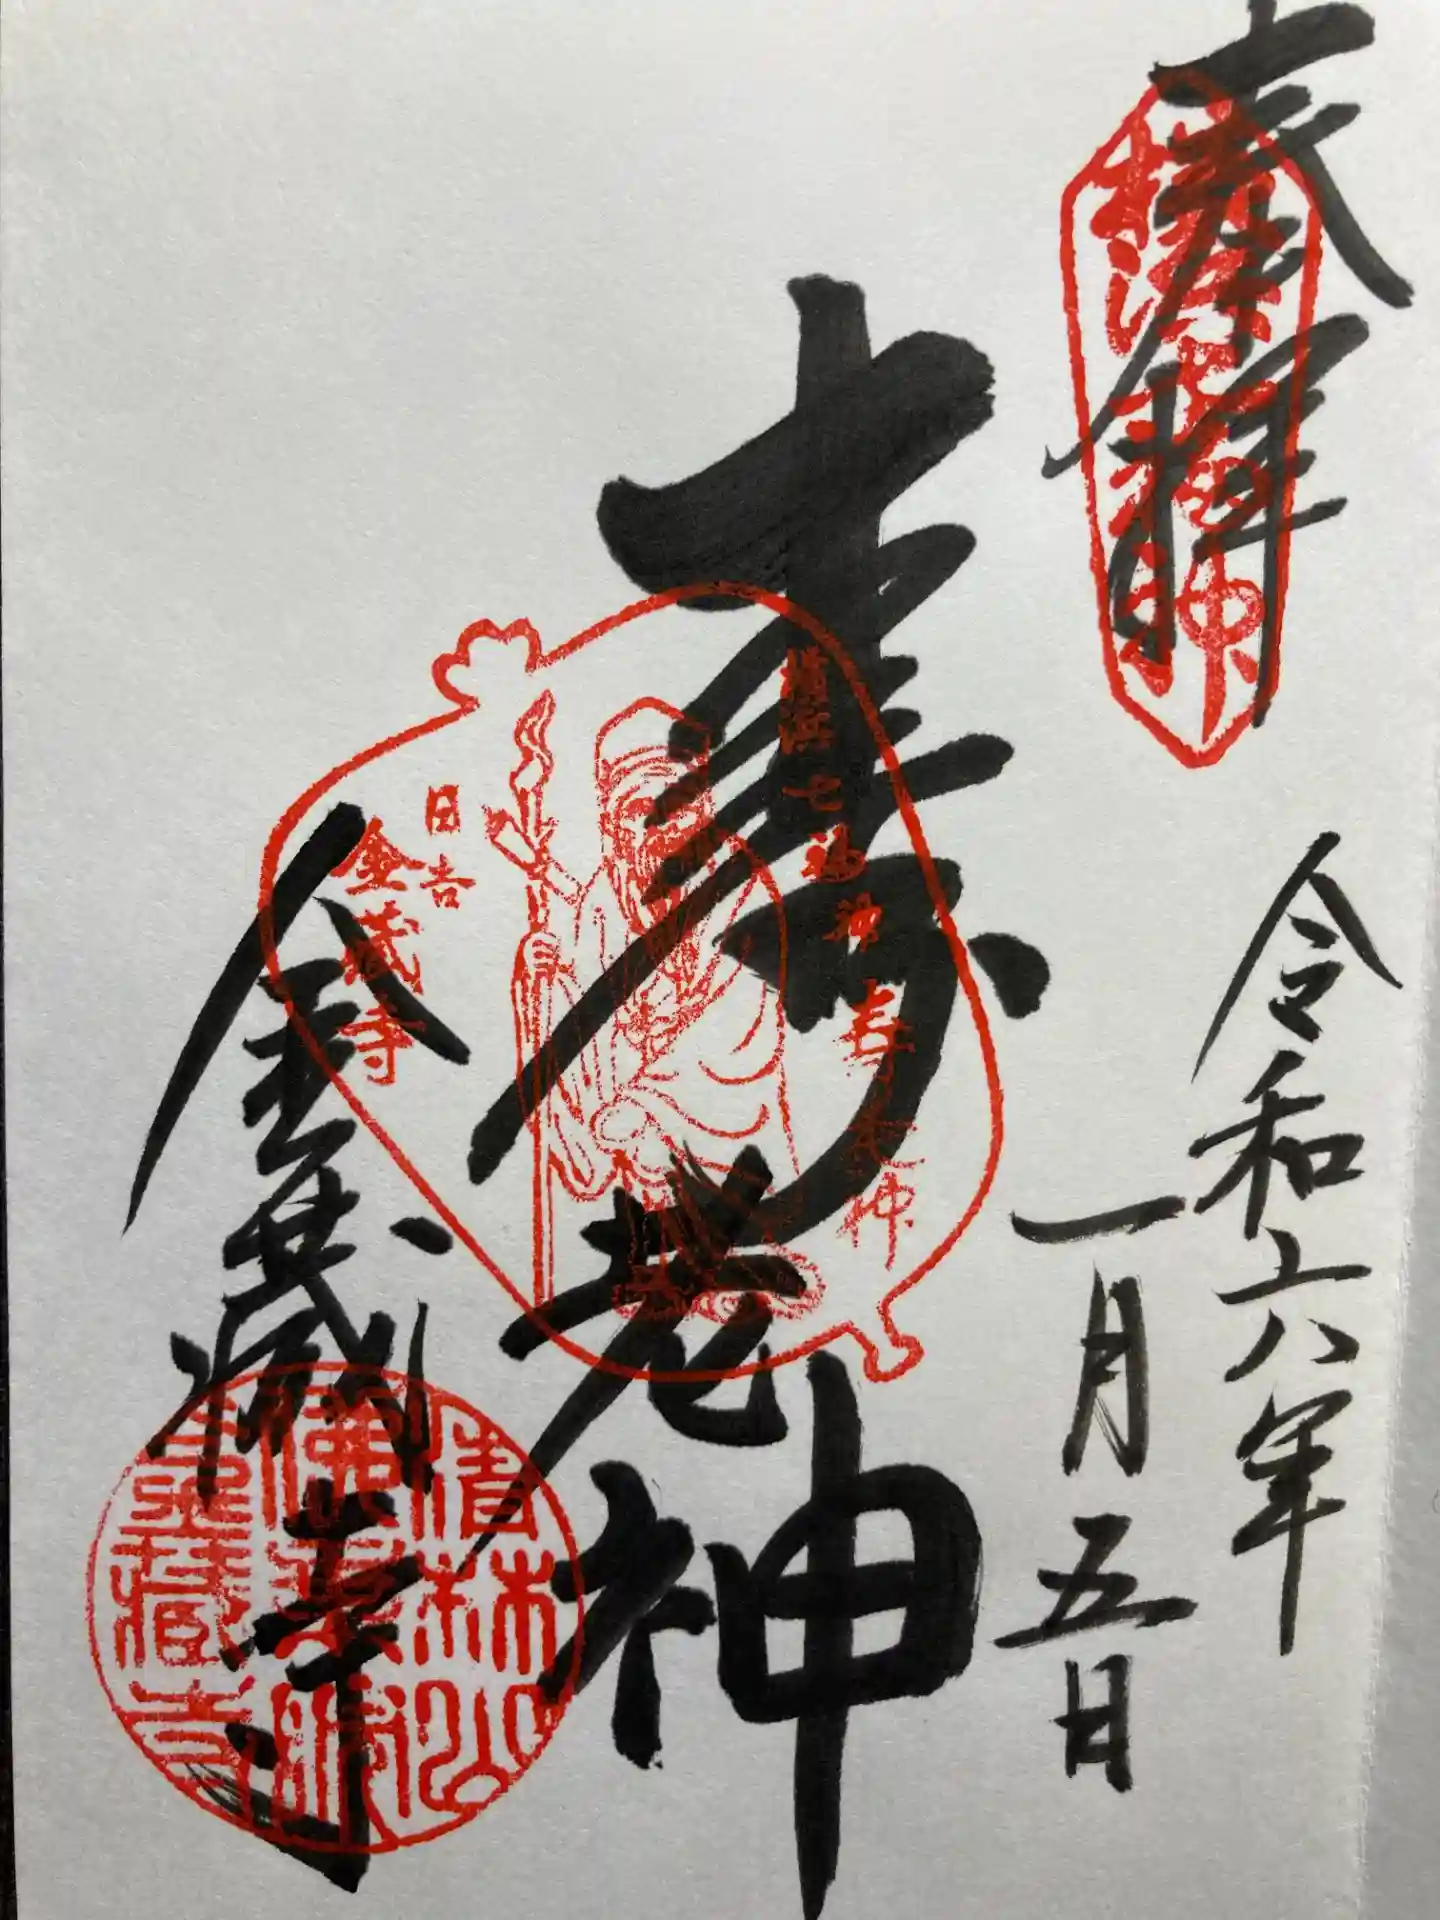 奉拝
横浜七福神
令和六年
一月五日
寿老神
横浜七福神寿老神
日吉
金蔵寺
金蔵寺
清林山
佛乗院
金藏寺